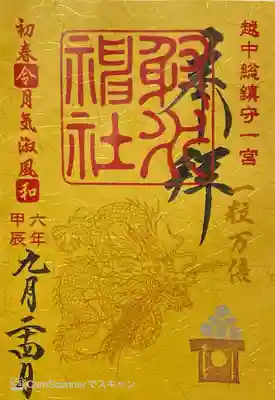 越中総鎮守一宮
奉拝
一粒万倍
射水
神社
初春令月気淑風和
六年
甲辰
九月二四日
CamScannerでスキャン